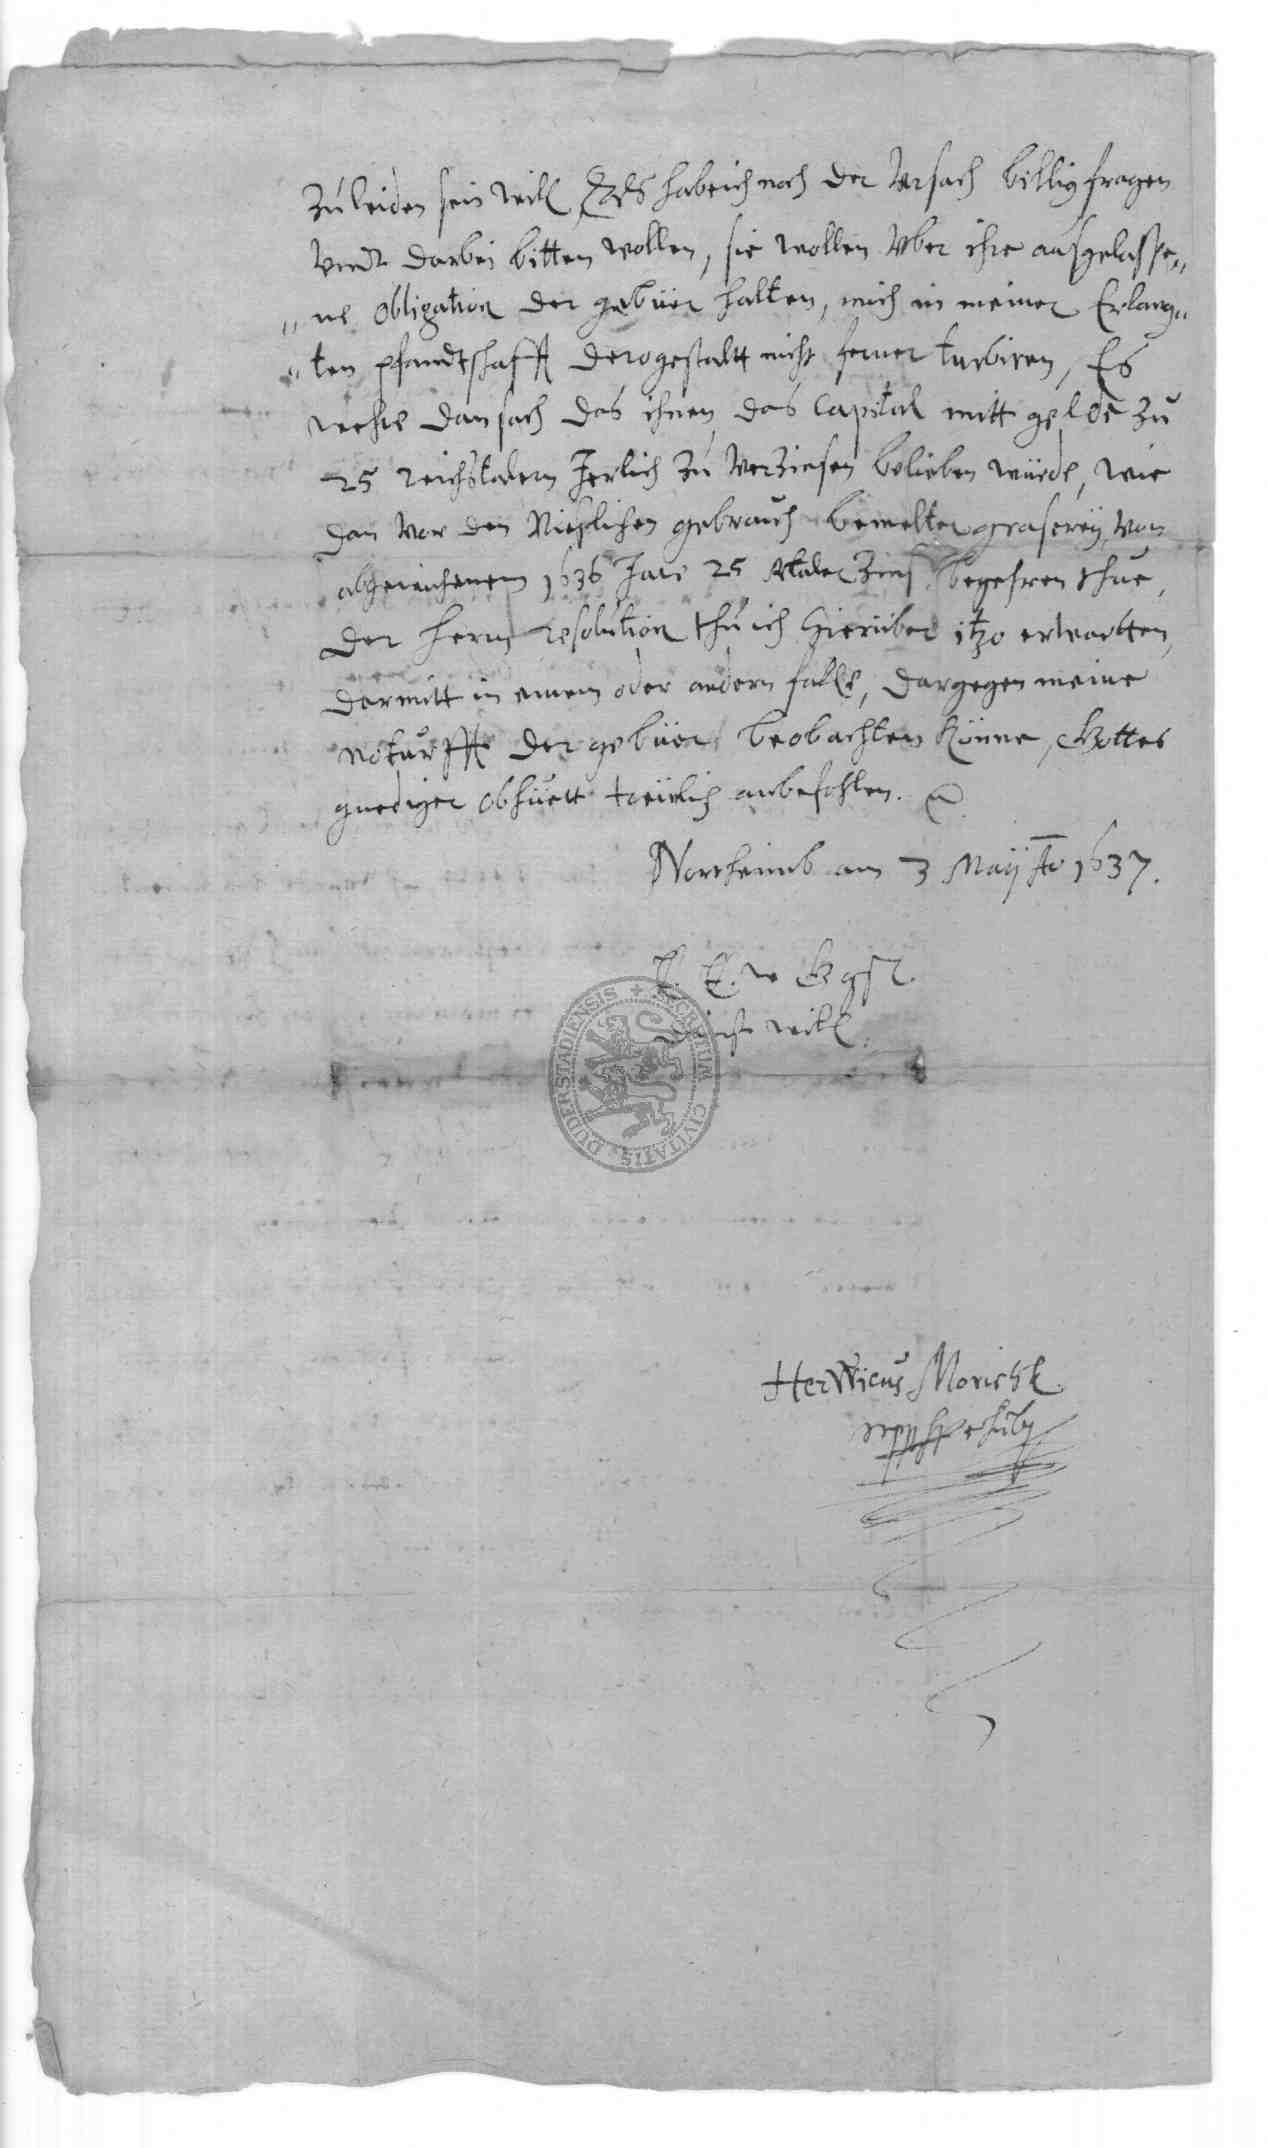 zu leiden sein will, Als hab ich nach der Ursach billig fragen
undt darbei bitten wollen, sie wollen Uber ihre ausgelasse„
„ne obligation der gebüer halten, mich in meiner Erlang„
„ten pfandtschafft derogestaltt nicht ferner turbiren, Es
wehre dan sach das ihnen das Capital mitt gelde zu
25 reichstalern Jerlich zu verzinsen belieben würde, wie
dan vor den Nießlichen gebrauch bemelter graserey, von
abgewichenem 1636 Jare 25 Rtaler Zinß begehren thue,
Der Herrn resolution thu ich hierüber itzo erwartten,
darmitt in einem oder andern falle, dargegen meine
Noturfft der gebüer beobachten könne, Gottes
gnediger obhuett treulich anbefohlen.
Northeimb am 3 Maij Ao 1637.
E. E. w Gg
dienst will.
SECRETUM CIVITATIS DUDERSTADIENSIS
Herwicus